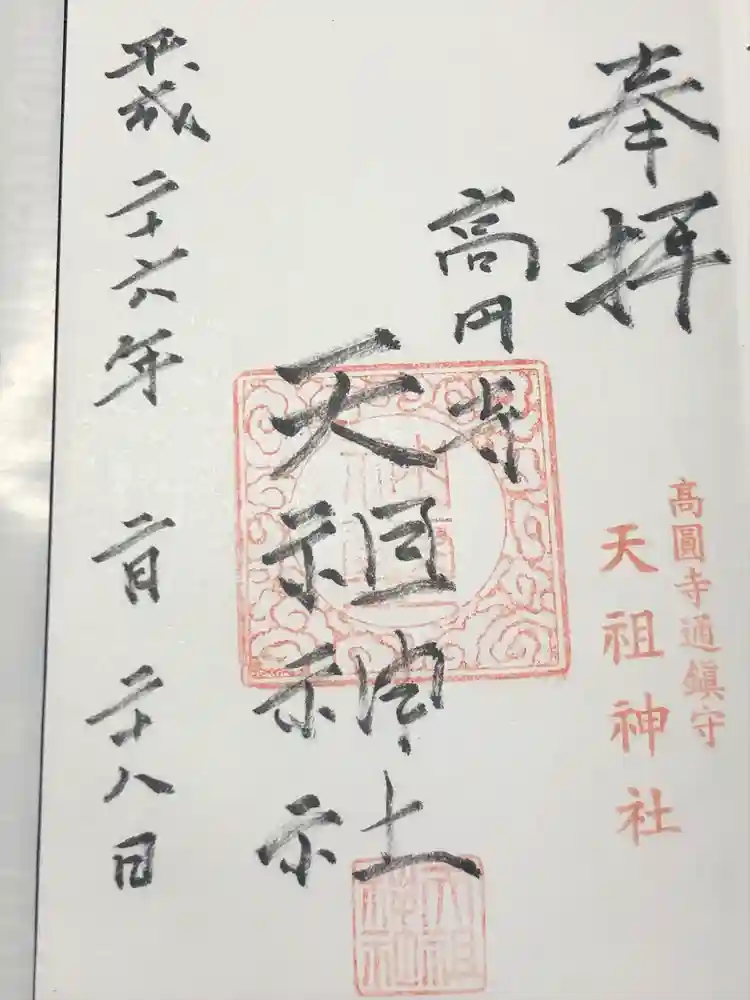 奉拝
高圓寺通鎮守
天祖神社
高円寺
天祖神社
天祖神社
平成二十六年 二月 二十八日